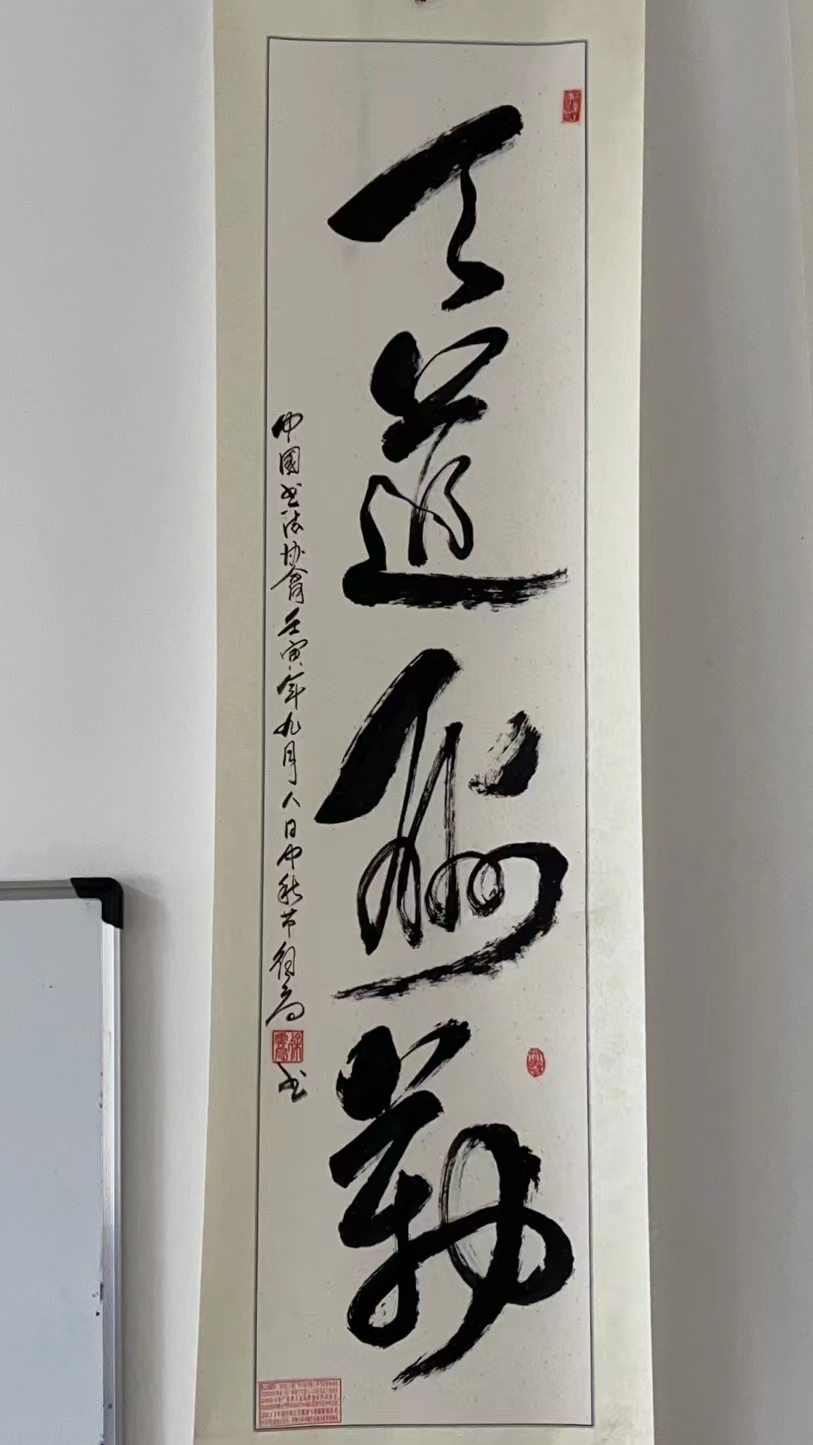 天道酬勤
中国书法协会壬寅年九月八日中秋节徐高书